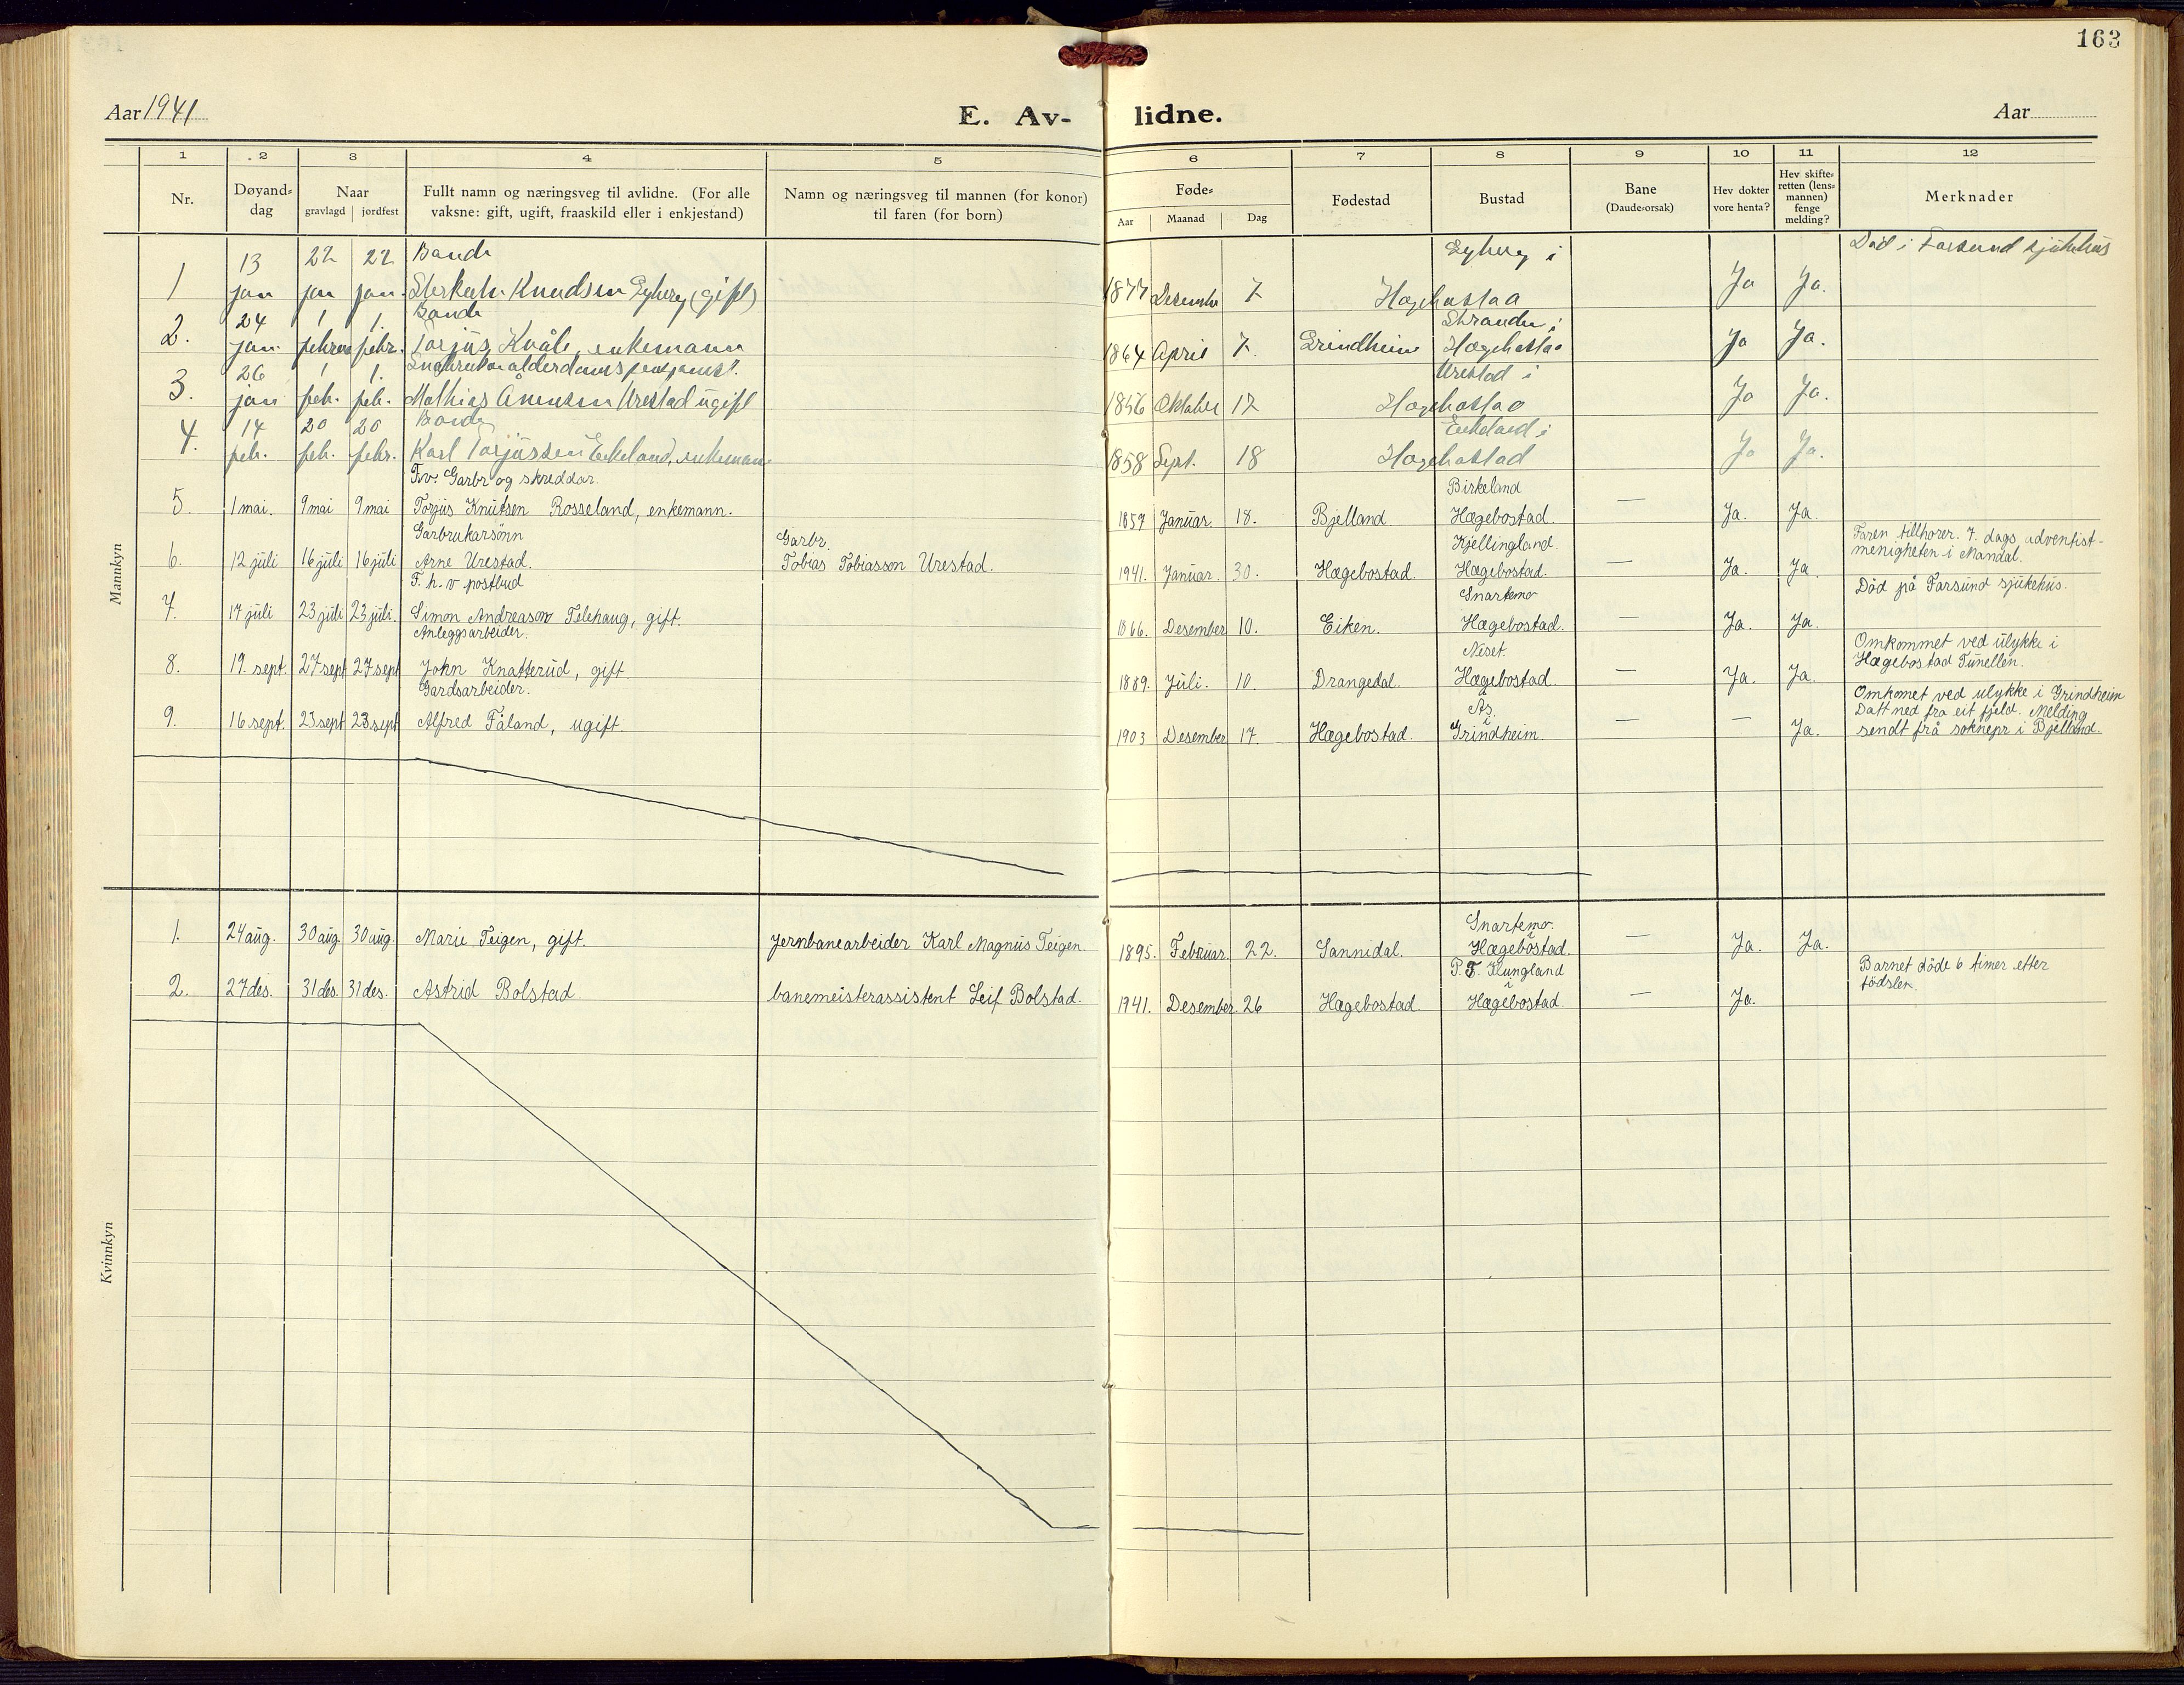 163
Aar 1941
E. Av-
lidne.
Aar
1 2 3 4 5 6 7 8 9 10 11 12
Nr.
Døyand-
dag
Naar
gravlagd jordfest
Fullt namn og næringsveg til avlidne. (For alle
vaksne: gift, ugift, fraaskild eller i enkjestand)
Namn og næringsveg til mannen (for konor)
til faren (for born)
Føde-
Aar Maanad Dag
Fødestad
Bustad
Bane
(Daude-orsak)
Hev dokter
vore henta?
Hev skifte-
retten (lens-
mannen)
fenge
melding?
Merknader
Mannkyn
13 22 22 Bonde Eyberg i Død i Farsund sjukehus
1 jan jan jan. Knudsen Eyberg (gift) 1877 Desember 7 Ja Ja.
24 1 1. Bonde i
2. jan februar febr. Torjus Kvåle, enkemann 1864 April 7. Grindheim Ja Ja.
26 1 1. Urestad i
3. jan feb. feb. Mathias Urestad ugift 1856 Oktober 12 Ja Ja.
14 20 20 Bonde Eikeland i
4. feb. feb. febr. Karl Torjussen Eikeland, enkemann 1858 Sept. 18 Hægebostad Ja Ja.
Fv. Garbr og skreddar. Birkeland
5. 1 mai. 9 mai 9 mai Torjus Knutsen Rosseland, enkemann. 1857 Januar. 18. Bjelland Hægebostad. — Ja. Ja.
Garbrukarsønn Garbr. Kjellingland. Faren tillhorer. 7. dags adventist-
menigheten i Mandal.
6. 12 juli 16 juli 16 juli Arne Urestad. Tobias Tobiasson Urestad. 1941. Januar. 30. Hægebostad. Hægebostad. — Ja. Ja.
F. h. v postbud Snartemo Död på Farsund sjukehus.
7. 17 juli 23 juli 23 juli. Simon Andreason Telehaug, gift. 1866. Desember 10. Eiken. Hægebostad. — Ja. Ja.
Anleggsarbeider. Neset. Omkommet ved ulykke i
Hægebostad Tunellen.
8. 19. sept. 27 sept 27 sept John Knatterud, gift. 1889. Juli. 10. Drangedal. Hægebostad. — Ja. Ja.
Gardsarbeider. Ås Omkomet ved ulykke i Grindheim
i Datt ned fra eit fjeld. Melding
9. 16 sept. 23 sept 23 sept Alfred Fåland, ugift. 1903 Desember 17. Hægebostad. Grindheim. — — Ja. sendt frå soknepr i Bjelland.
Kvinnkyn
Snartemo.
i
1. 24 aug. 30 aug. 30 aug. Marie Teigen, gift. Jernbanearbeider Karl Magnus Teigen. 1895. Februar. 22. Sannidal. Hægebostad. — Ja. Ja.
P.T. Klungland Barnet døde 6 timer etter
i fødslen.
2. 27 des. 31 des. 31 des. Astrid Bolstad. banemeisterassistent Leif Bolstad. 1941. Desember. 26 Hægebostad. Hægebostad. — Ja.